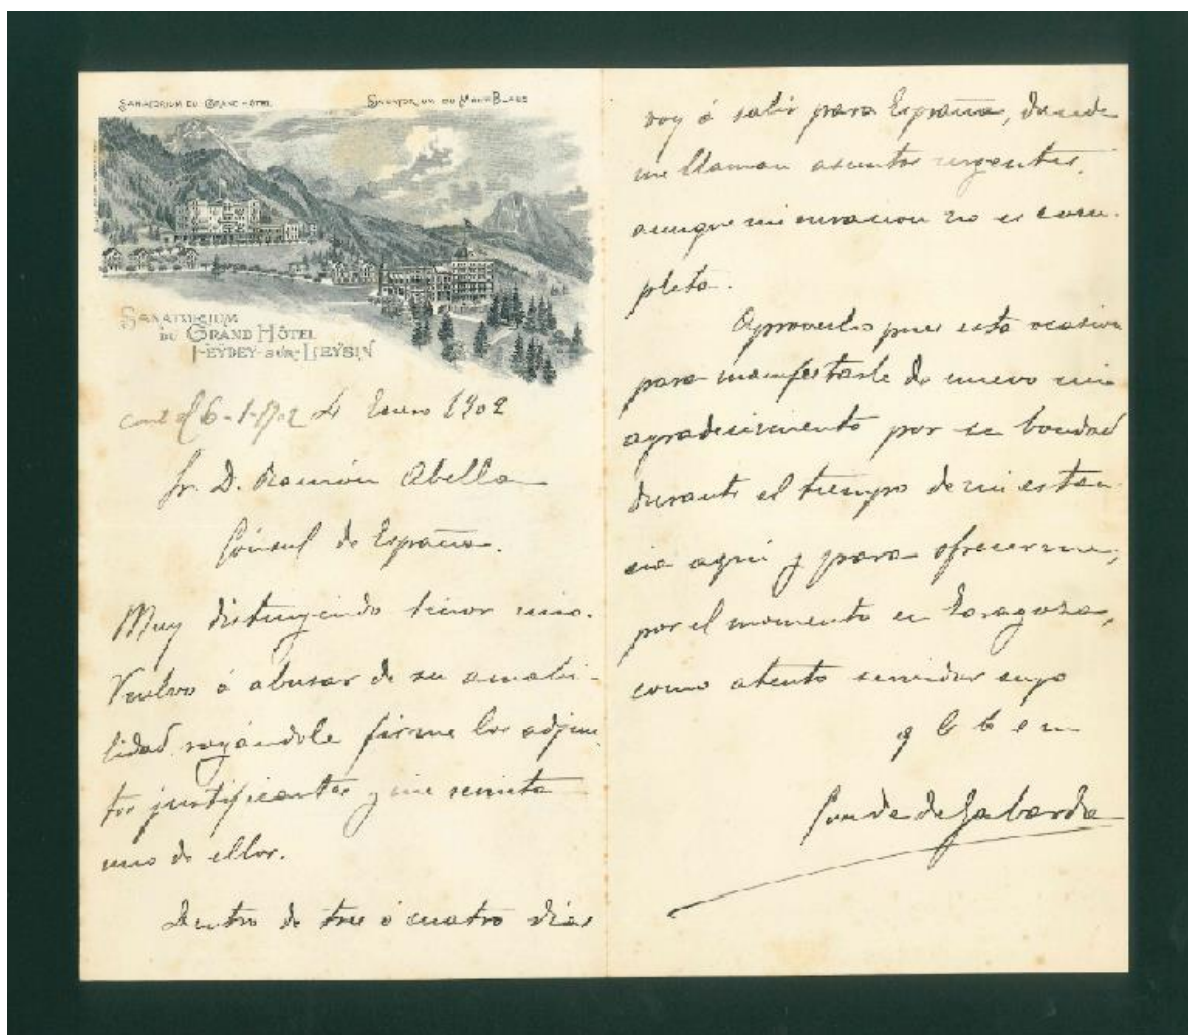 SANATORIUM DU GRAND HÔTEL
SANATORIUM DU MONT BLANC
SANATORIUM
DU GRAND HÔTEL
FEYDEY-SUR-LEYSIN
cont el 6-1-902 4 Enero 1902
Sr. D. Ramón Abella
Cónsul de España.
Muy distinguido señor mio.
Vuelvo á abusar de su amabi-
lidad rogándole firme los adjun
tos justificantes y me remita
uno de ellos.
Dentro de tres ó cuatro dias
voy á salir para España, donde
me llaman asuntos urgentes,
aunque mi curacion no es com-
pleta.
Aprovecho pues esta ocasion
para manifestarle de nuevo mi
agradecimiento por su bondad
durante el tiempo de mi estan-
cia aquí y para ofrecerme,
por el momento en Zaragoza,
como atento servidor suyo
q b s m
Conde de Gabarda